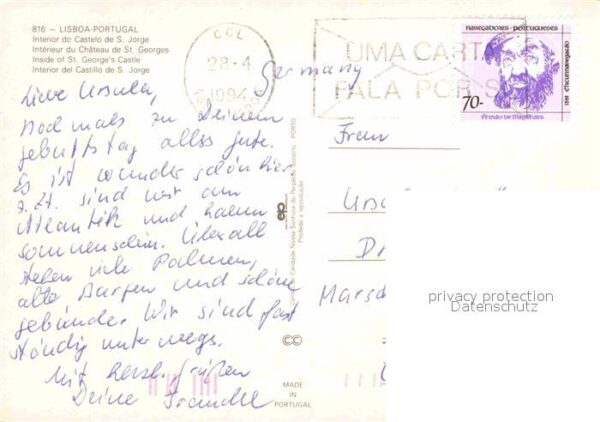 816 — LISBOA-PORTUGAL
Interior do Castelo de S. Jorge
Intérieur du Château de St. Georges
Inside of St. George's Castle
Interior del Castillo de S. Jorge
CCL
28-4
1994
UMA CARTA
FALA POR S
NAVEGADORES PORTUGUESES
70-
Fernão de Magalhães
1519 Circumnavegação
Germany
Liebe Ursula,
Nochmals zu Deinem
geburtstag alles gute.
Es ist wunderschön hier
z. Zt. sind wir am
Atlantik und haben
sonnenschein. Überall
stehen viele Palmen,
alte Burgen und schöne
gebäude. Wir sind fast
ständig unterwegs.
Mit herzl. grüßen
Deine
Frau
Ursu
D
Marsd
PORTO
Proibida a reprodução
MADE
IN
PORTUGAL
privacy protection
Datenschutz